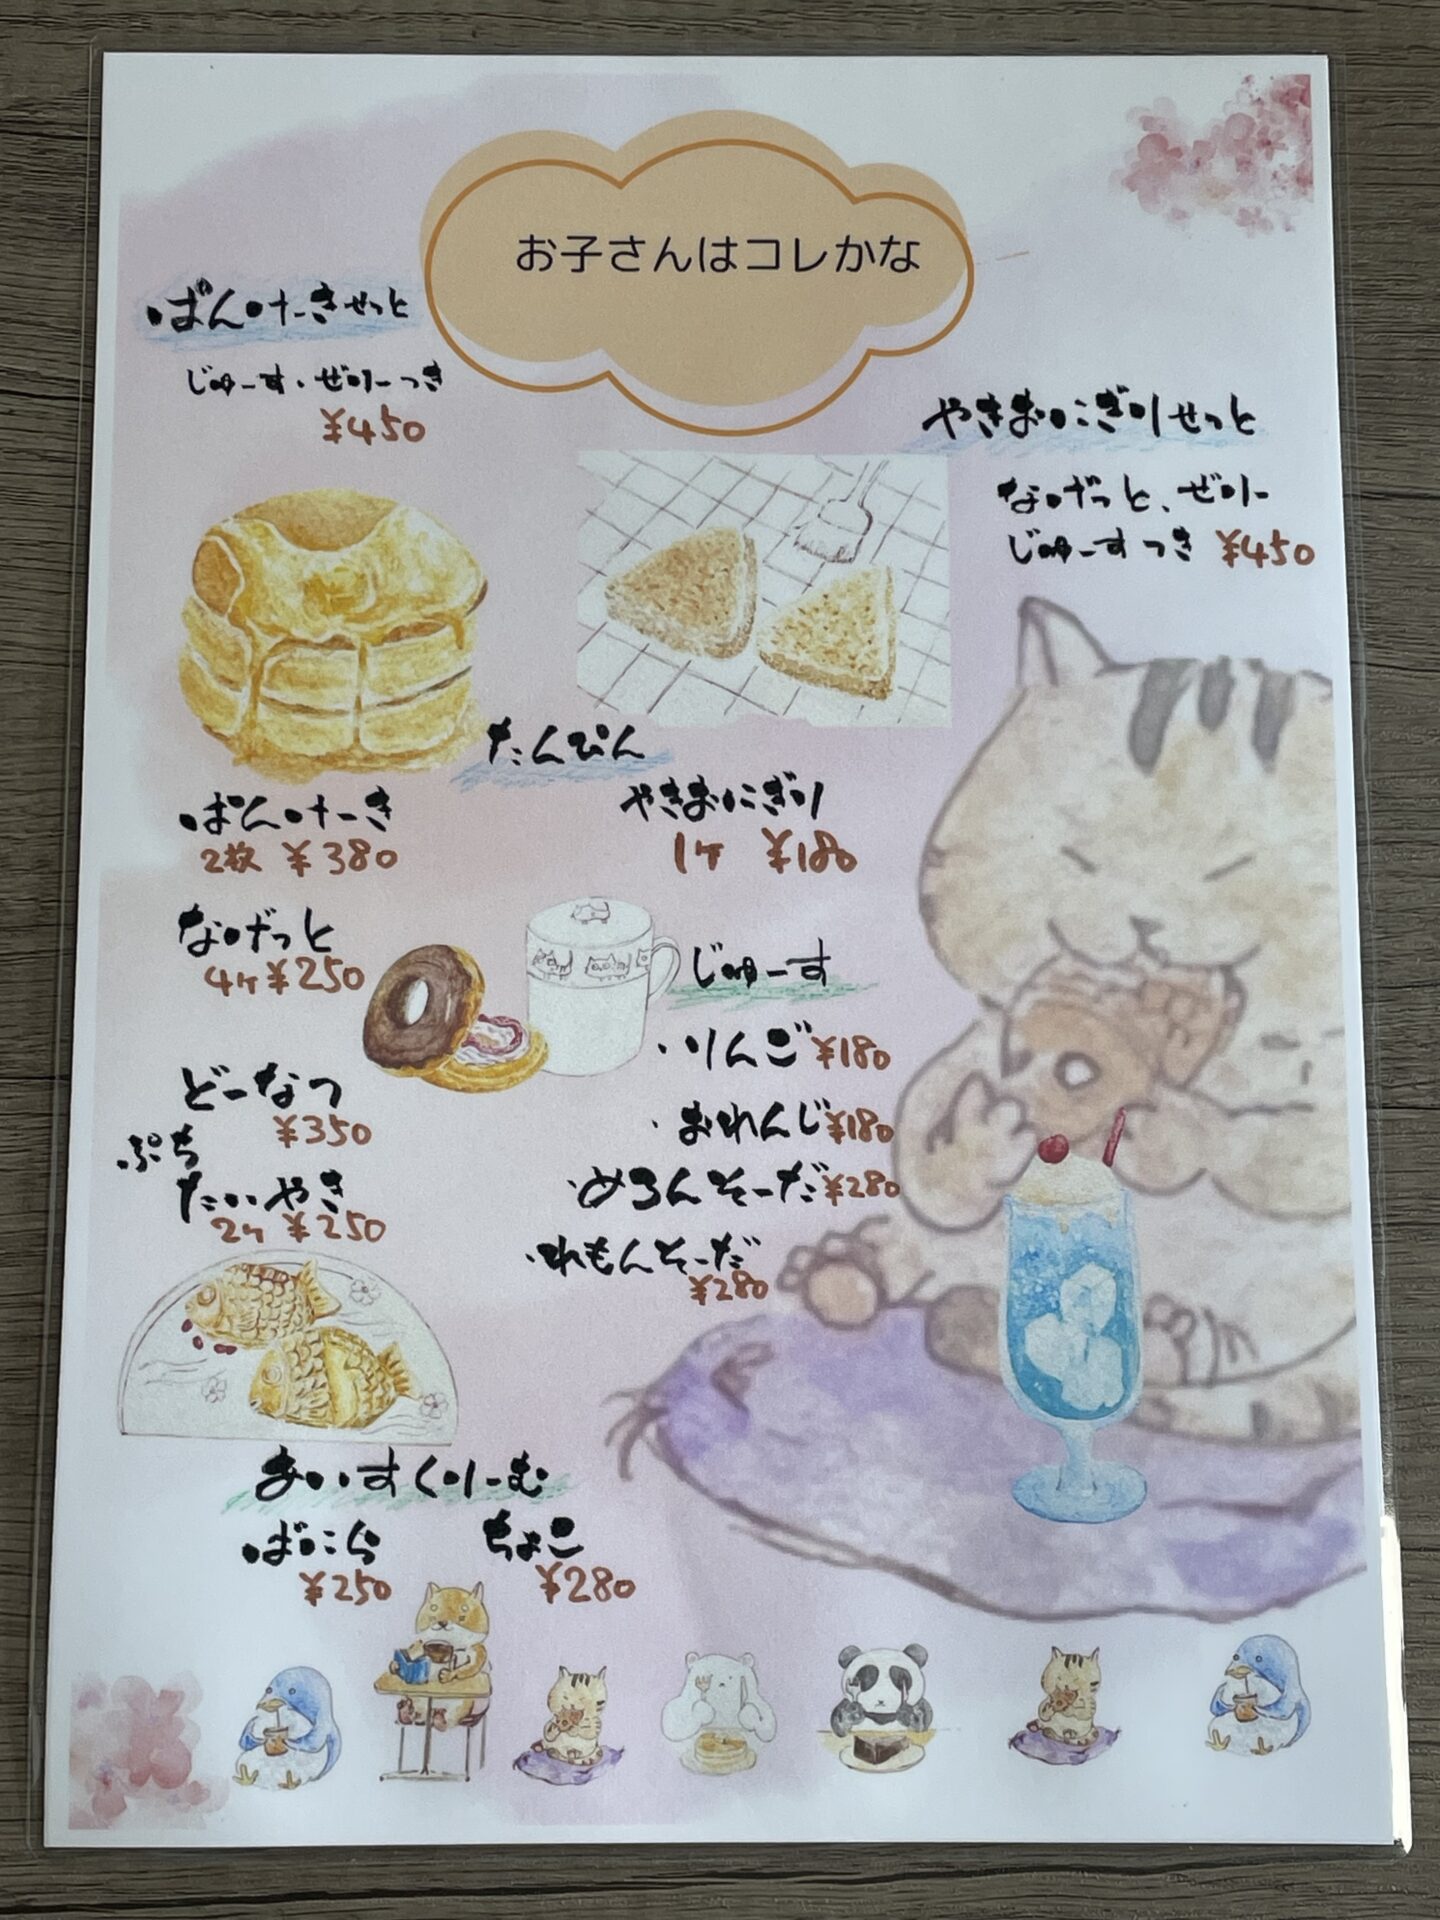 お子さんはコレかな
ぱんけーきせっと
じゅーす・ぜりーつき
¥450
やきおにぎりせっと
なげっと、ぜりー
じゅーすつき ¥450
たんぴん
ぱんけーき
2枚 ¥380
やきおにぎり
1ヶ ¥180
なげっと
4ヶ ¥250
どーなつ
¥350
ぷち
たいやき
2ヶ ¥250
じゅーす
・りんご ¥180
・おれんじ ¥180
・めろんそーだ ¥280
・れもんそーだ
¥280
あいすくりーむ
ばにら
¥250
ちょこ
¥280